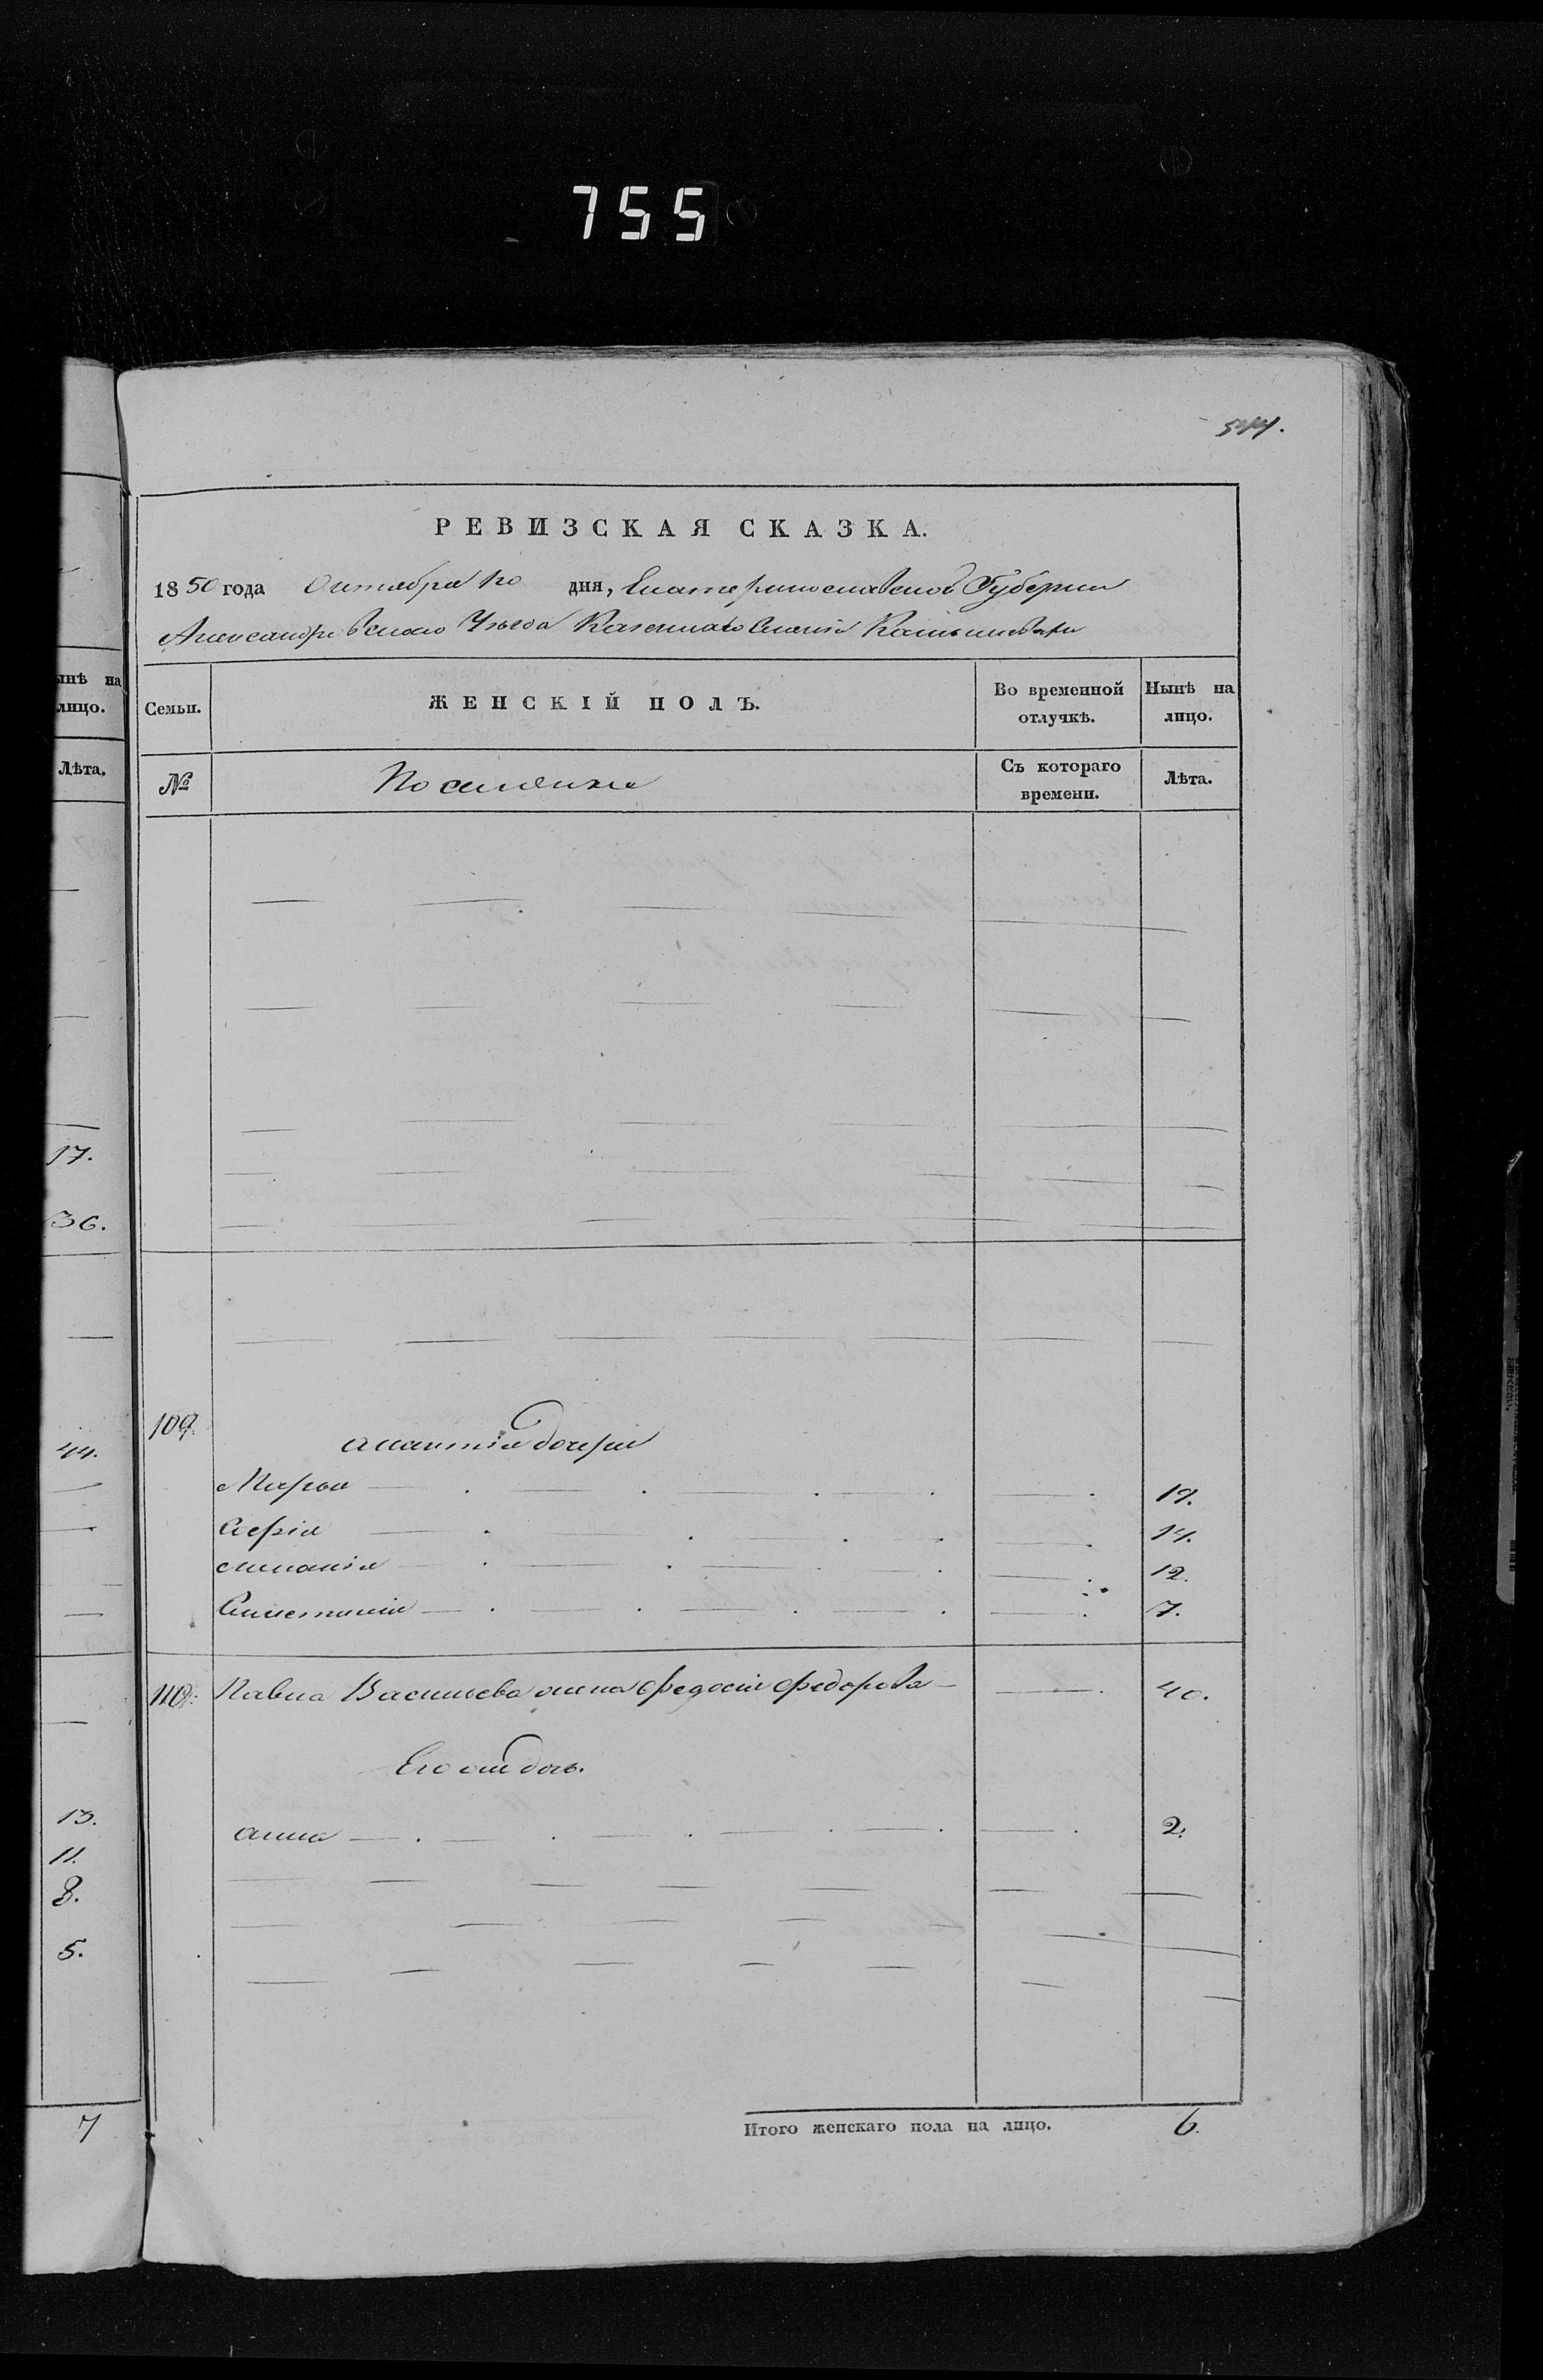 755
544.
РЕВИЗСКАЯ СКАЗКА.
1850 года Октября 20 дня, Екатеринославской Губернии
Александровскаго Уезда Казеннаго Селенія
ынѣ на
лицо.
Лѣта.
17.
36.
44.
13.
11.
8.
5.
7
Семьи. ЖЕНСКІЙ ПОЛЪ. Во временной отлучкѣ. Нынѣ на лицо.
№ Поселяне Съ котораго времени. Лѣта.
109. дочери
Марья 19.
Софія 14.
12.
7.
110. Павла Васильева жена Федосія Федорова 40.
Его же дочь.
Анна 2.
Итого женскаго пола на лицо. 6.